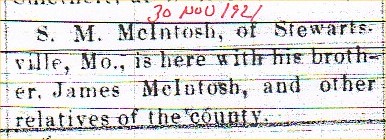 30 NOV 1921
S. M. McIntosh, of Stewarts-
ville, Mo., is here with his broth-
er, James McIntosh, and other
relatives of the county.